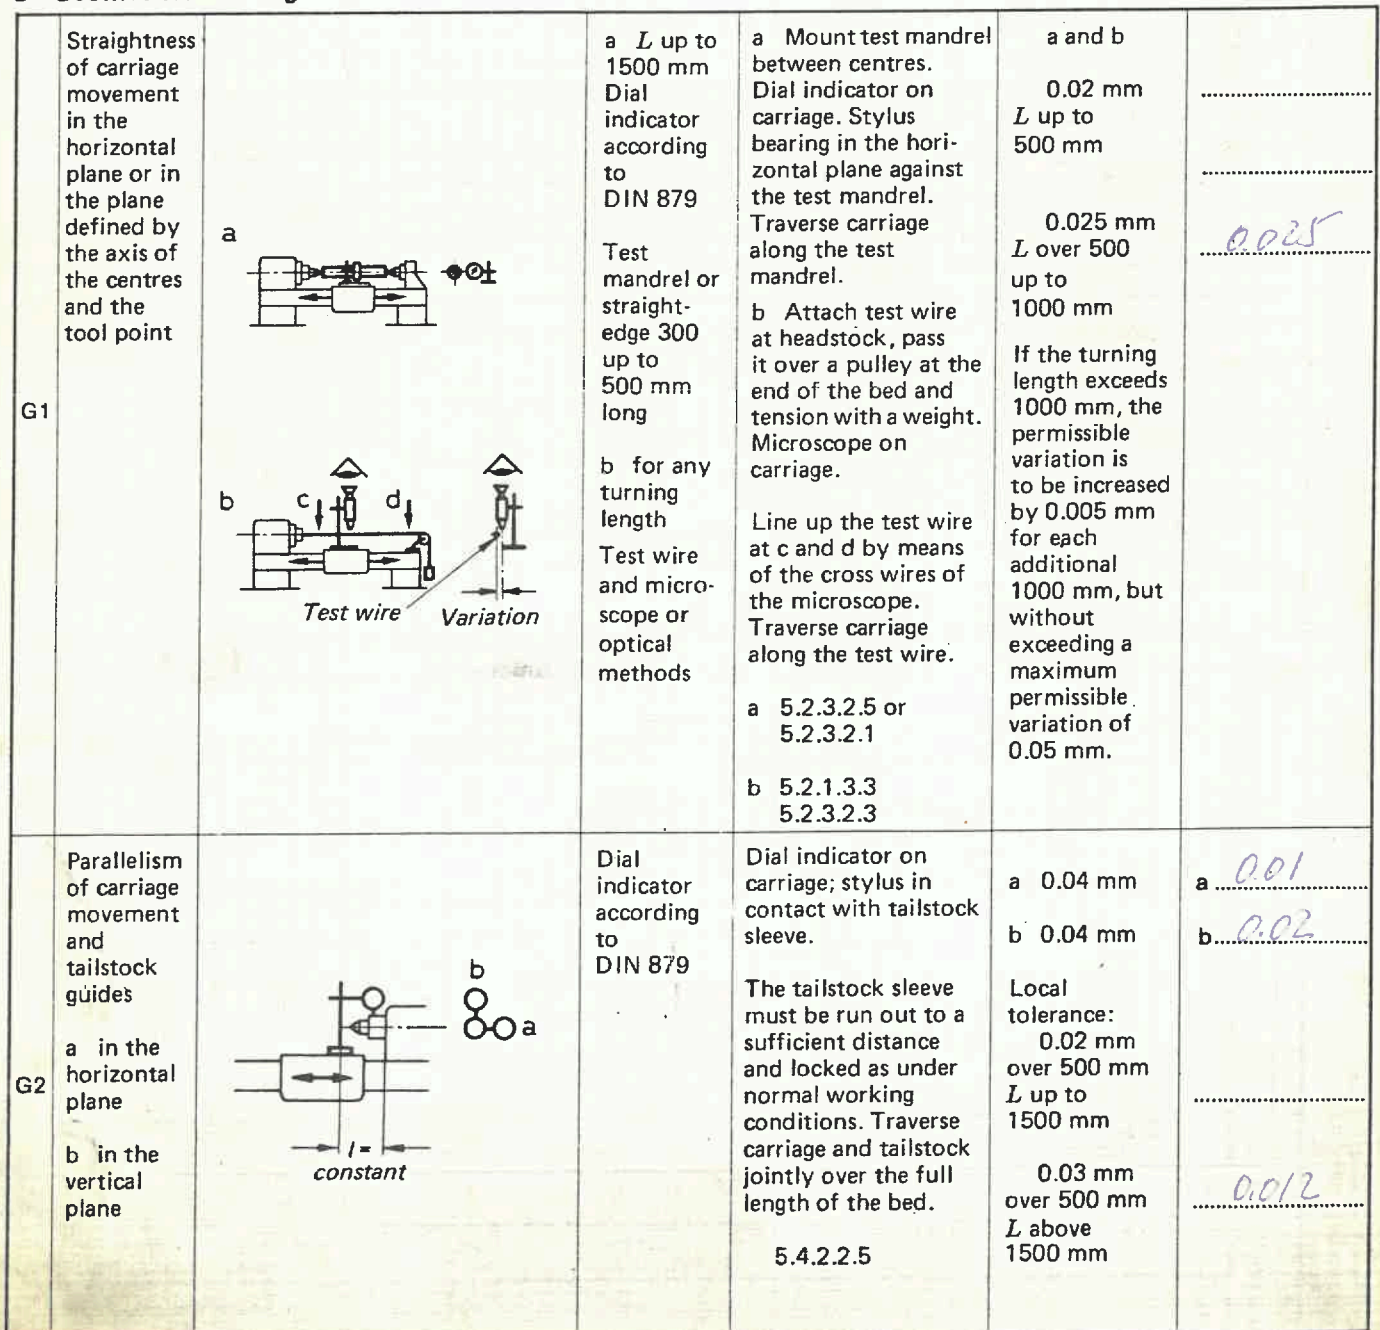 G1
Straightness
of carriage
movement
in the
horizontal
plane or in
the plane
defined by
the axis of
the centres
and the
tool point
a
b
c
d
Test wire
Variation
a L up to
1500 mm
Dial
indicator
according
to
DIN 879
Test
mandrel or
straight-
edge 300
up to
500 mm
long
b for any
turning
length
Test wire
and micro-
scope or
optical
methods
a Mount test mandrel
between centres.
Dial indicator on
carriage. Stylus
bearing in the hori-
zontal plane against
the test mandrel.
Traverse carriage
along the test
mandrel.
b Attach test wire
at headstock, pass
it over a pulley at the
end of the bed and
tension with a weight.
Microscope on
carriage.
Line up the test wire
at c and d by means
of the cross wires of
the microscope.
Traverse carriage
along the test wire.
a 5.2.3.2.5 or
5.2.3.2.1
b 5.2.1.3.3
5.2.3.2.3
a and b
0.02 mm
L up to
500 mm
0.025 mm
L over 500
up to
1000 mm
If the turning
length exceeds
1000 mm, the
permissible
variation is
to be increased
by 0.005 mm
for each
additional
1000 mm, but
without
exceeding a
maximum
permissible
variation of
0.05 mm.
0.025
G2
Parallelism
of carriage
movement
and
tailstock
guides
a in the
horizontal
plane
b in the
vertical
plane
b
a
l =
constant
Dial
indicator
according
to
DIN 879
Dial indicator on
carriage; stylus in
contact with tailstock
sleeve.
The tailstock sleeve
must be run out to a
sufficient distance
and locked as under
normal working
conditions. Traverse
carriage and tailstock
jointly over the full
length of the bed.
5.4.2.2.5
a 0.04 mm
b 0.04 mm
Local
tolerance:
0.02 mm
over 500 mm
L up to
1500 mm
0.03 mm
over 500 mm
L above
1500 mm
a 0.01
b 0.02
0.012